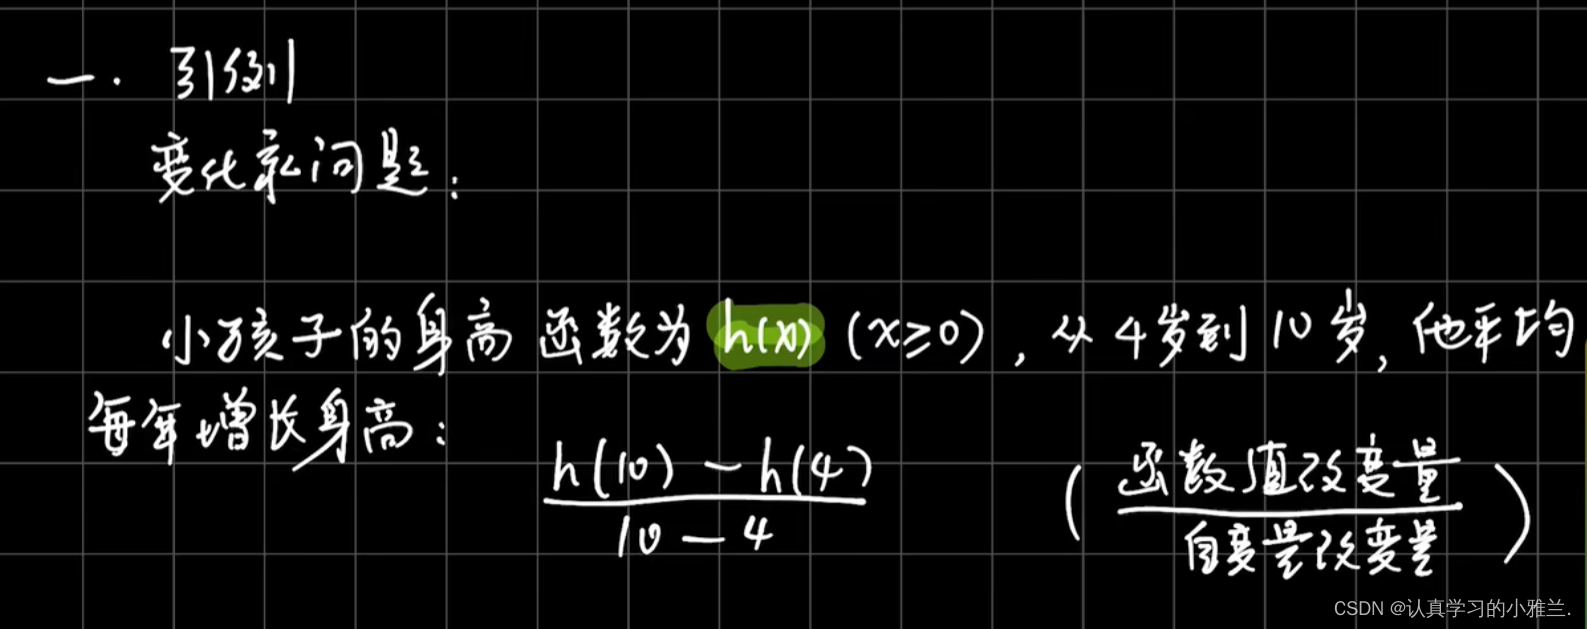 一. 引例
变化率问题:
小孩子的身高函数为 h(x) (x≥0), 从4岁到10岁, 他平均
每年增长身高:
h(10) - h(4)
10 - 4
( 函数值改变量
自变量改变量 )
CSDN @认真学习的小雅兰.